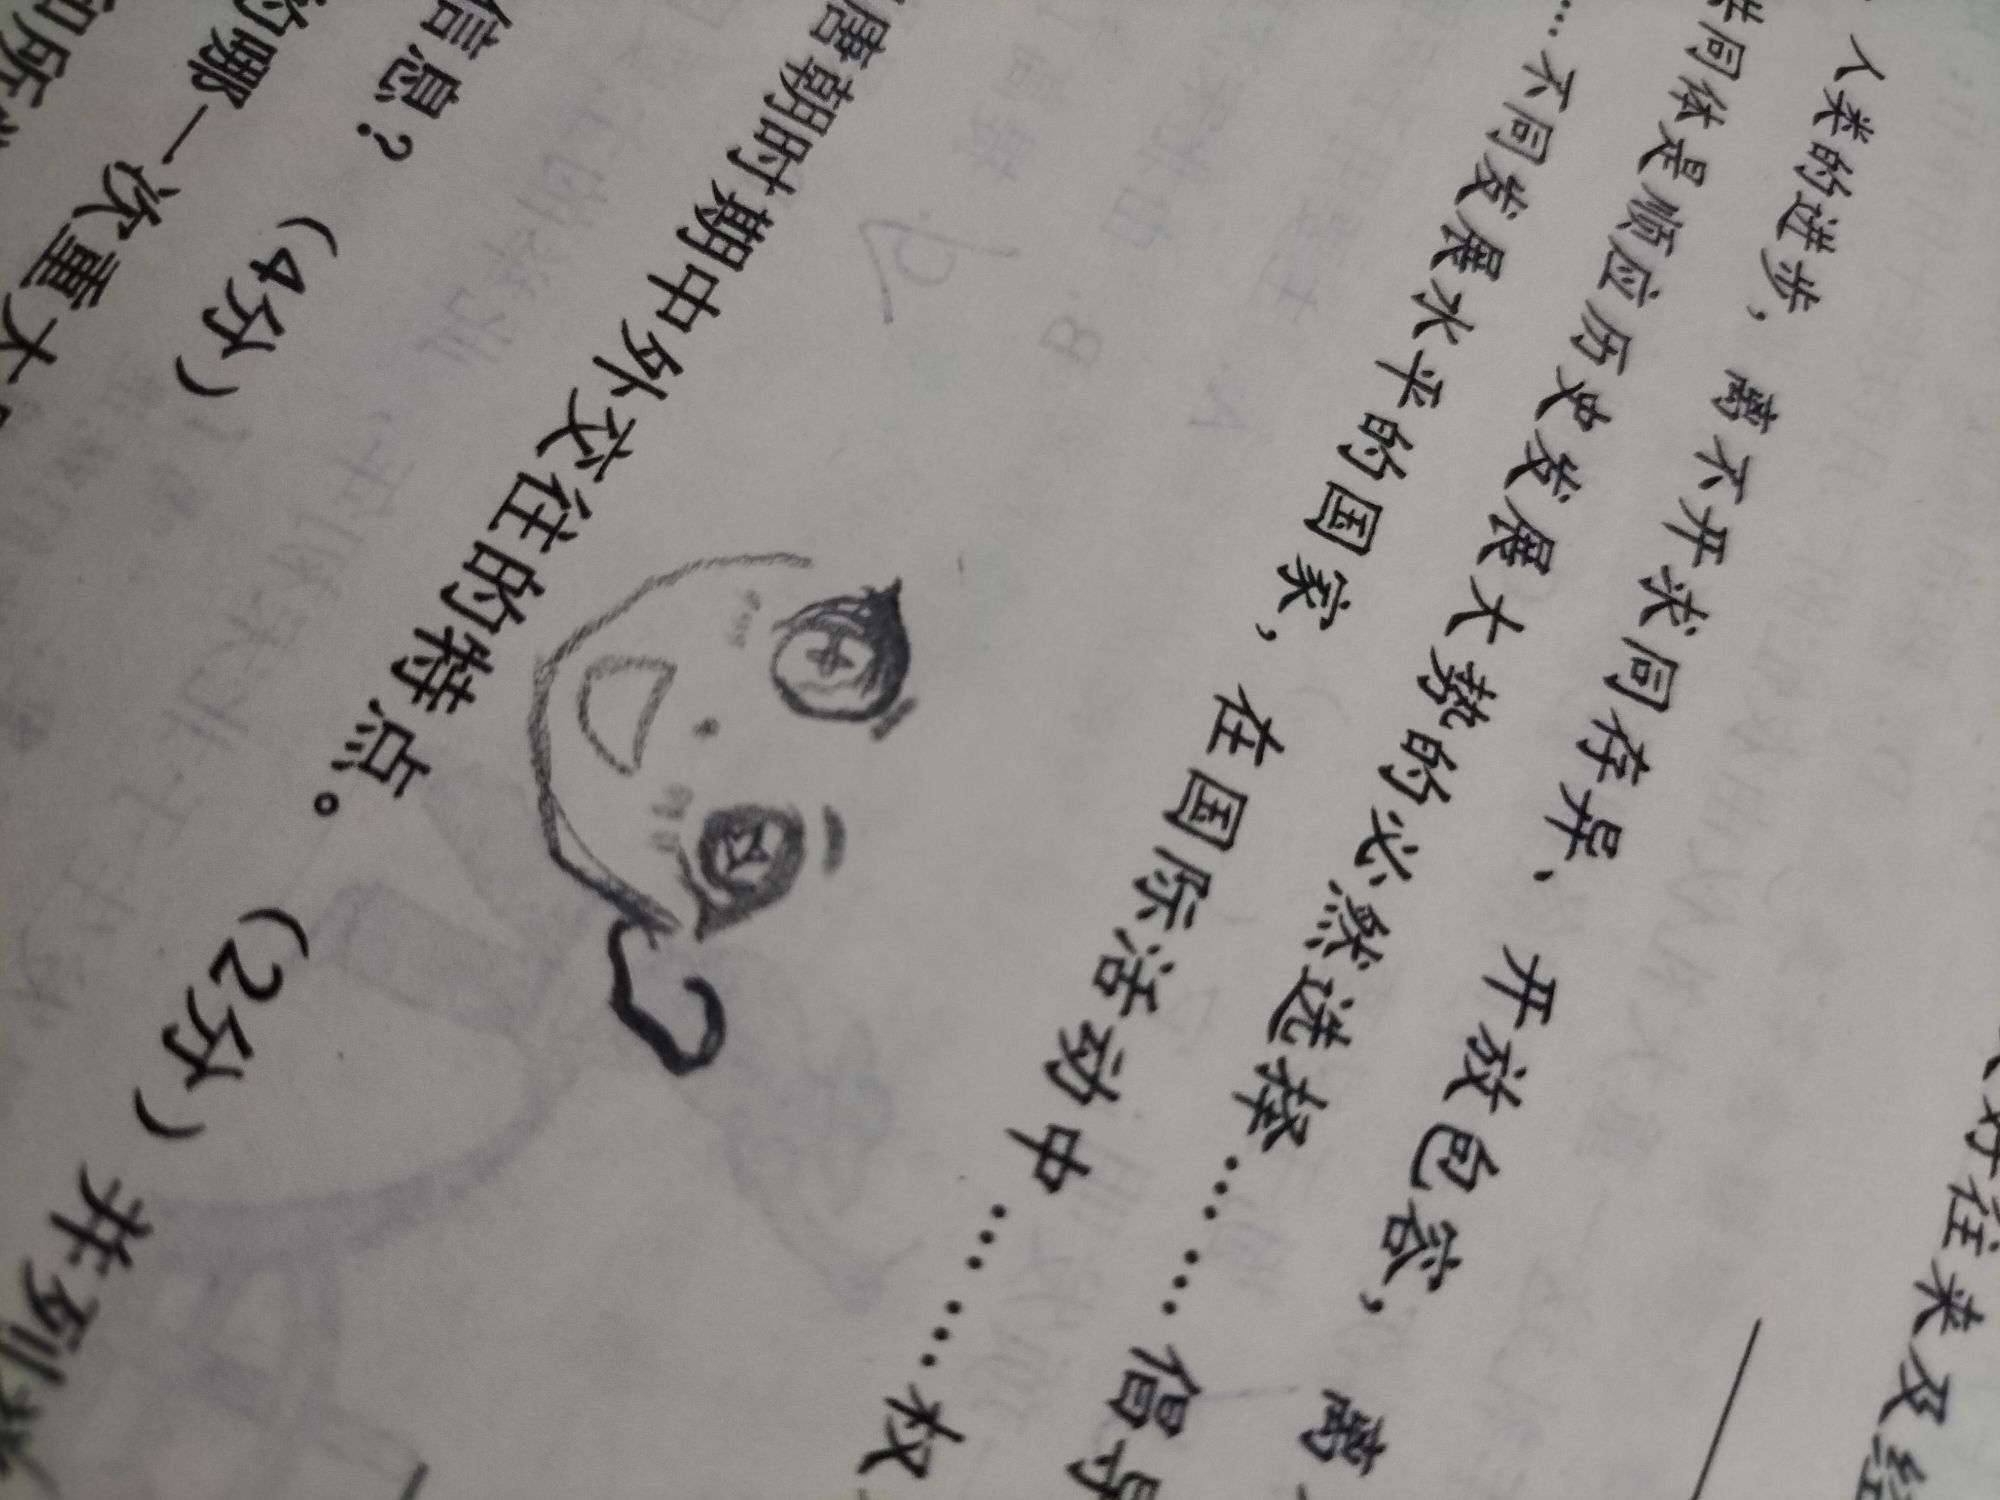 好往来及经
人类的进步，离不开求同存异、开放包容，离
共同体是顺应历史发展大势的必然选择……倡导
…不同发展水平的国家，在国际活动中……权
唐朝时期中外交往的特点。（2分）并列
信息？（4分）
的哪一次重大
和所